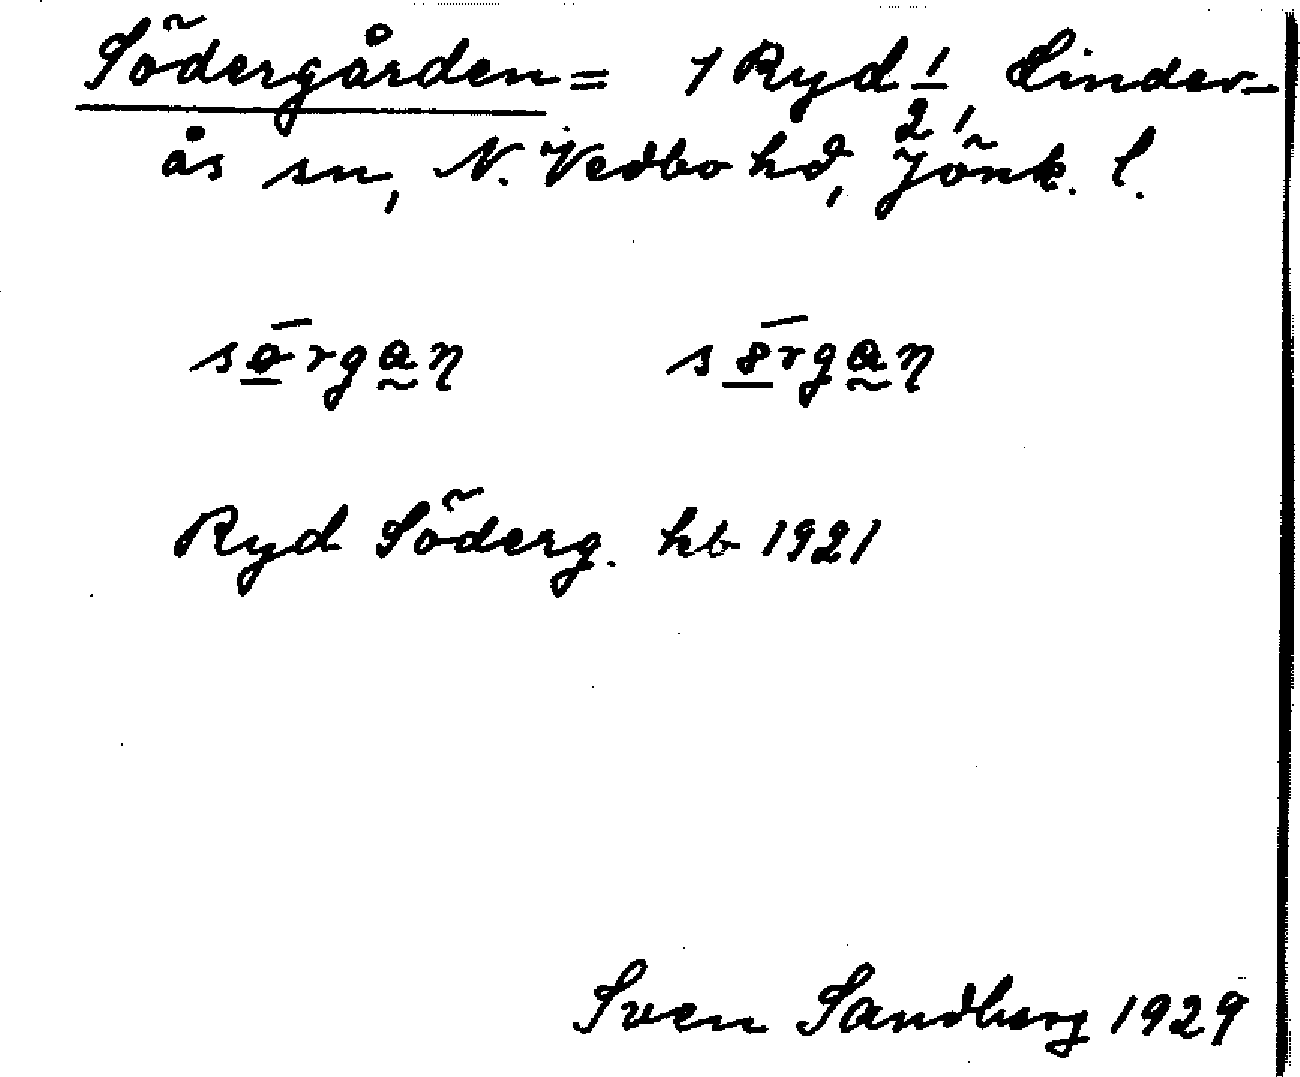 Södergården = 1 Ryd 1/2, Linder-
ås sn, N. Vedbo hd, Jönk. l.
Ryd Söderg. hb 1921
Sven Sandberg 1929